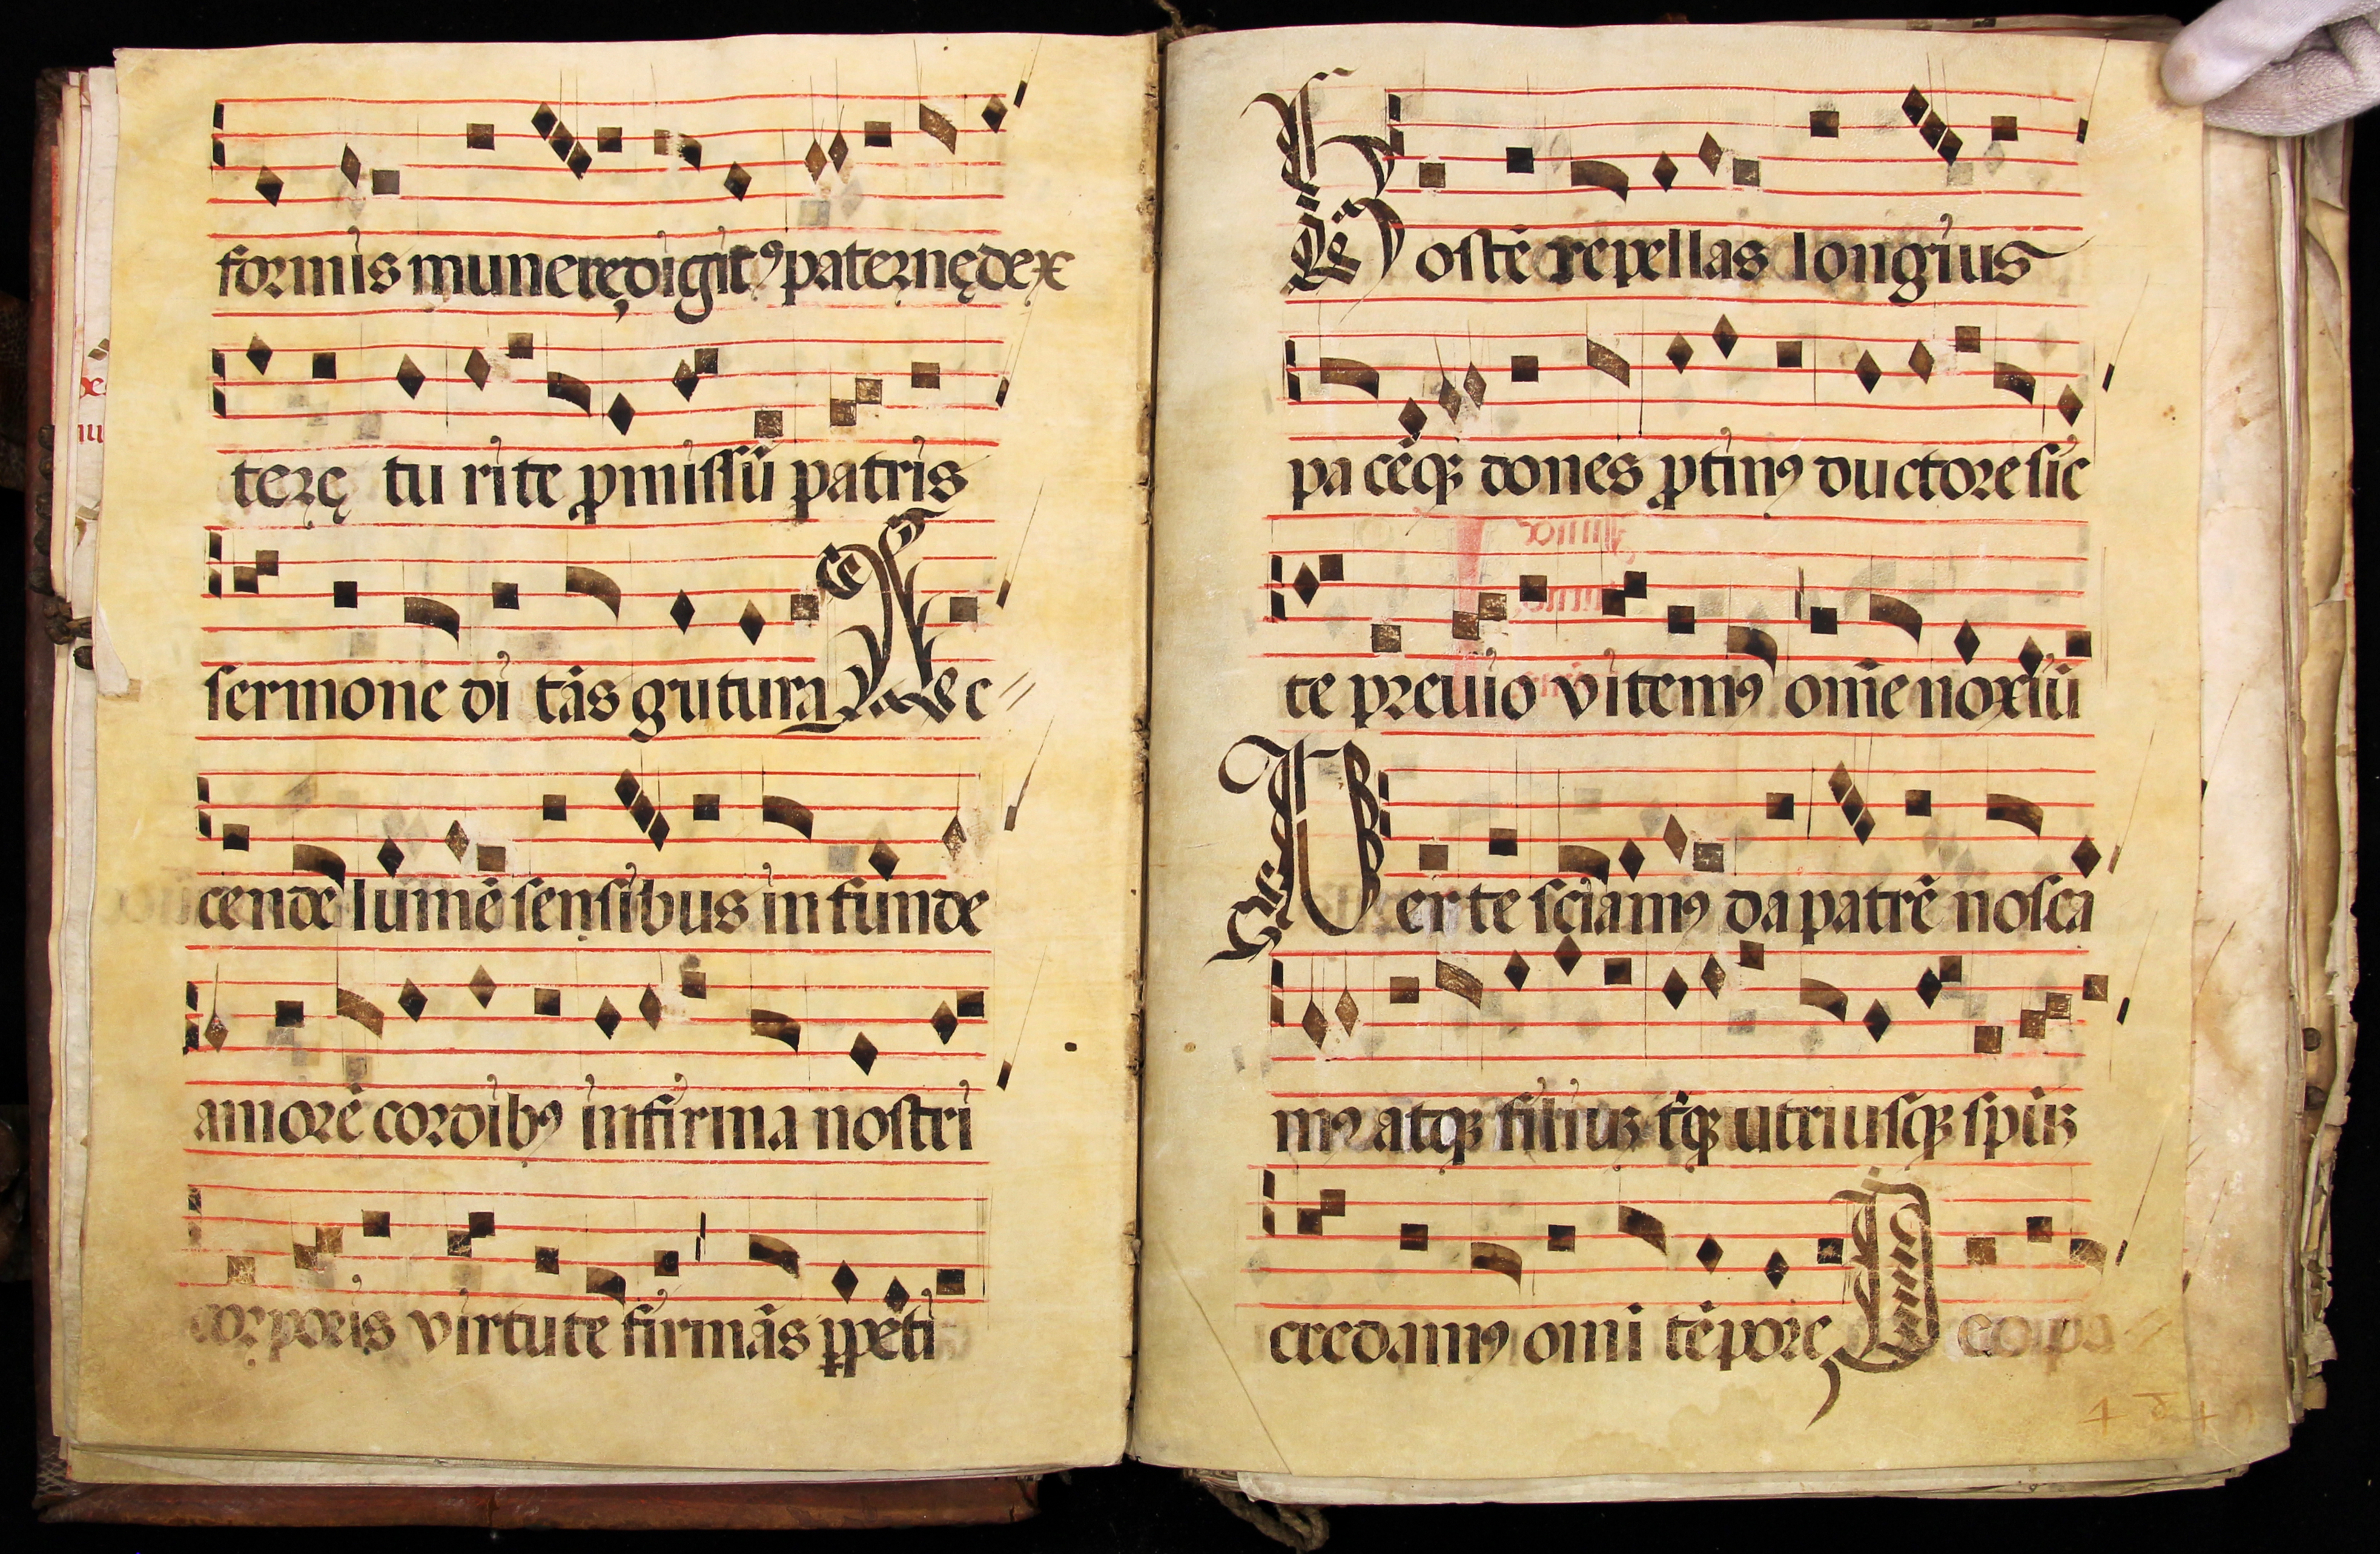 formis munere digitꝰ paternę dex
terę tu rite ꝓmissũ patris
sermone di tãs gutura Ac
cende lumẽ sensibus infunde
amorẽ cordibꝰ infirma nostri
corporis virtute firmãs ꝑpeti
Hostẽ repellas longius
pa cẽqꝫ dones ꝓtinꝰ ductore sic
te preuio vitemꝰ om̃e noxiũ
Per te sciamꝰ da patrẽ nosca
mꝰ atqꝫ filiuꝫ tqꝫ utriusqꝫ spũꝫ
credamꝰ omi tẽpore Deo pa